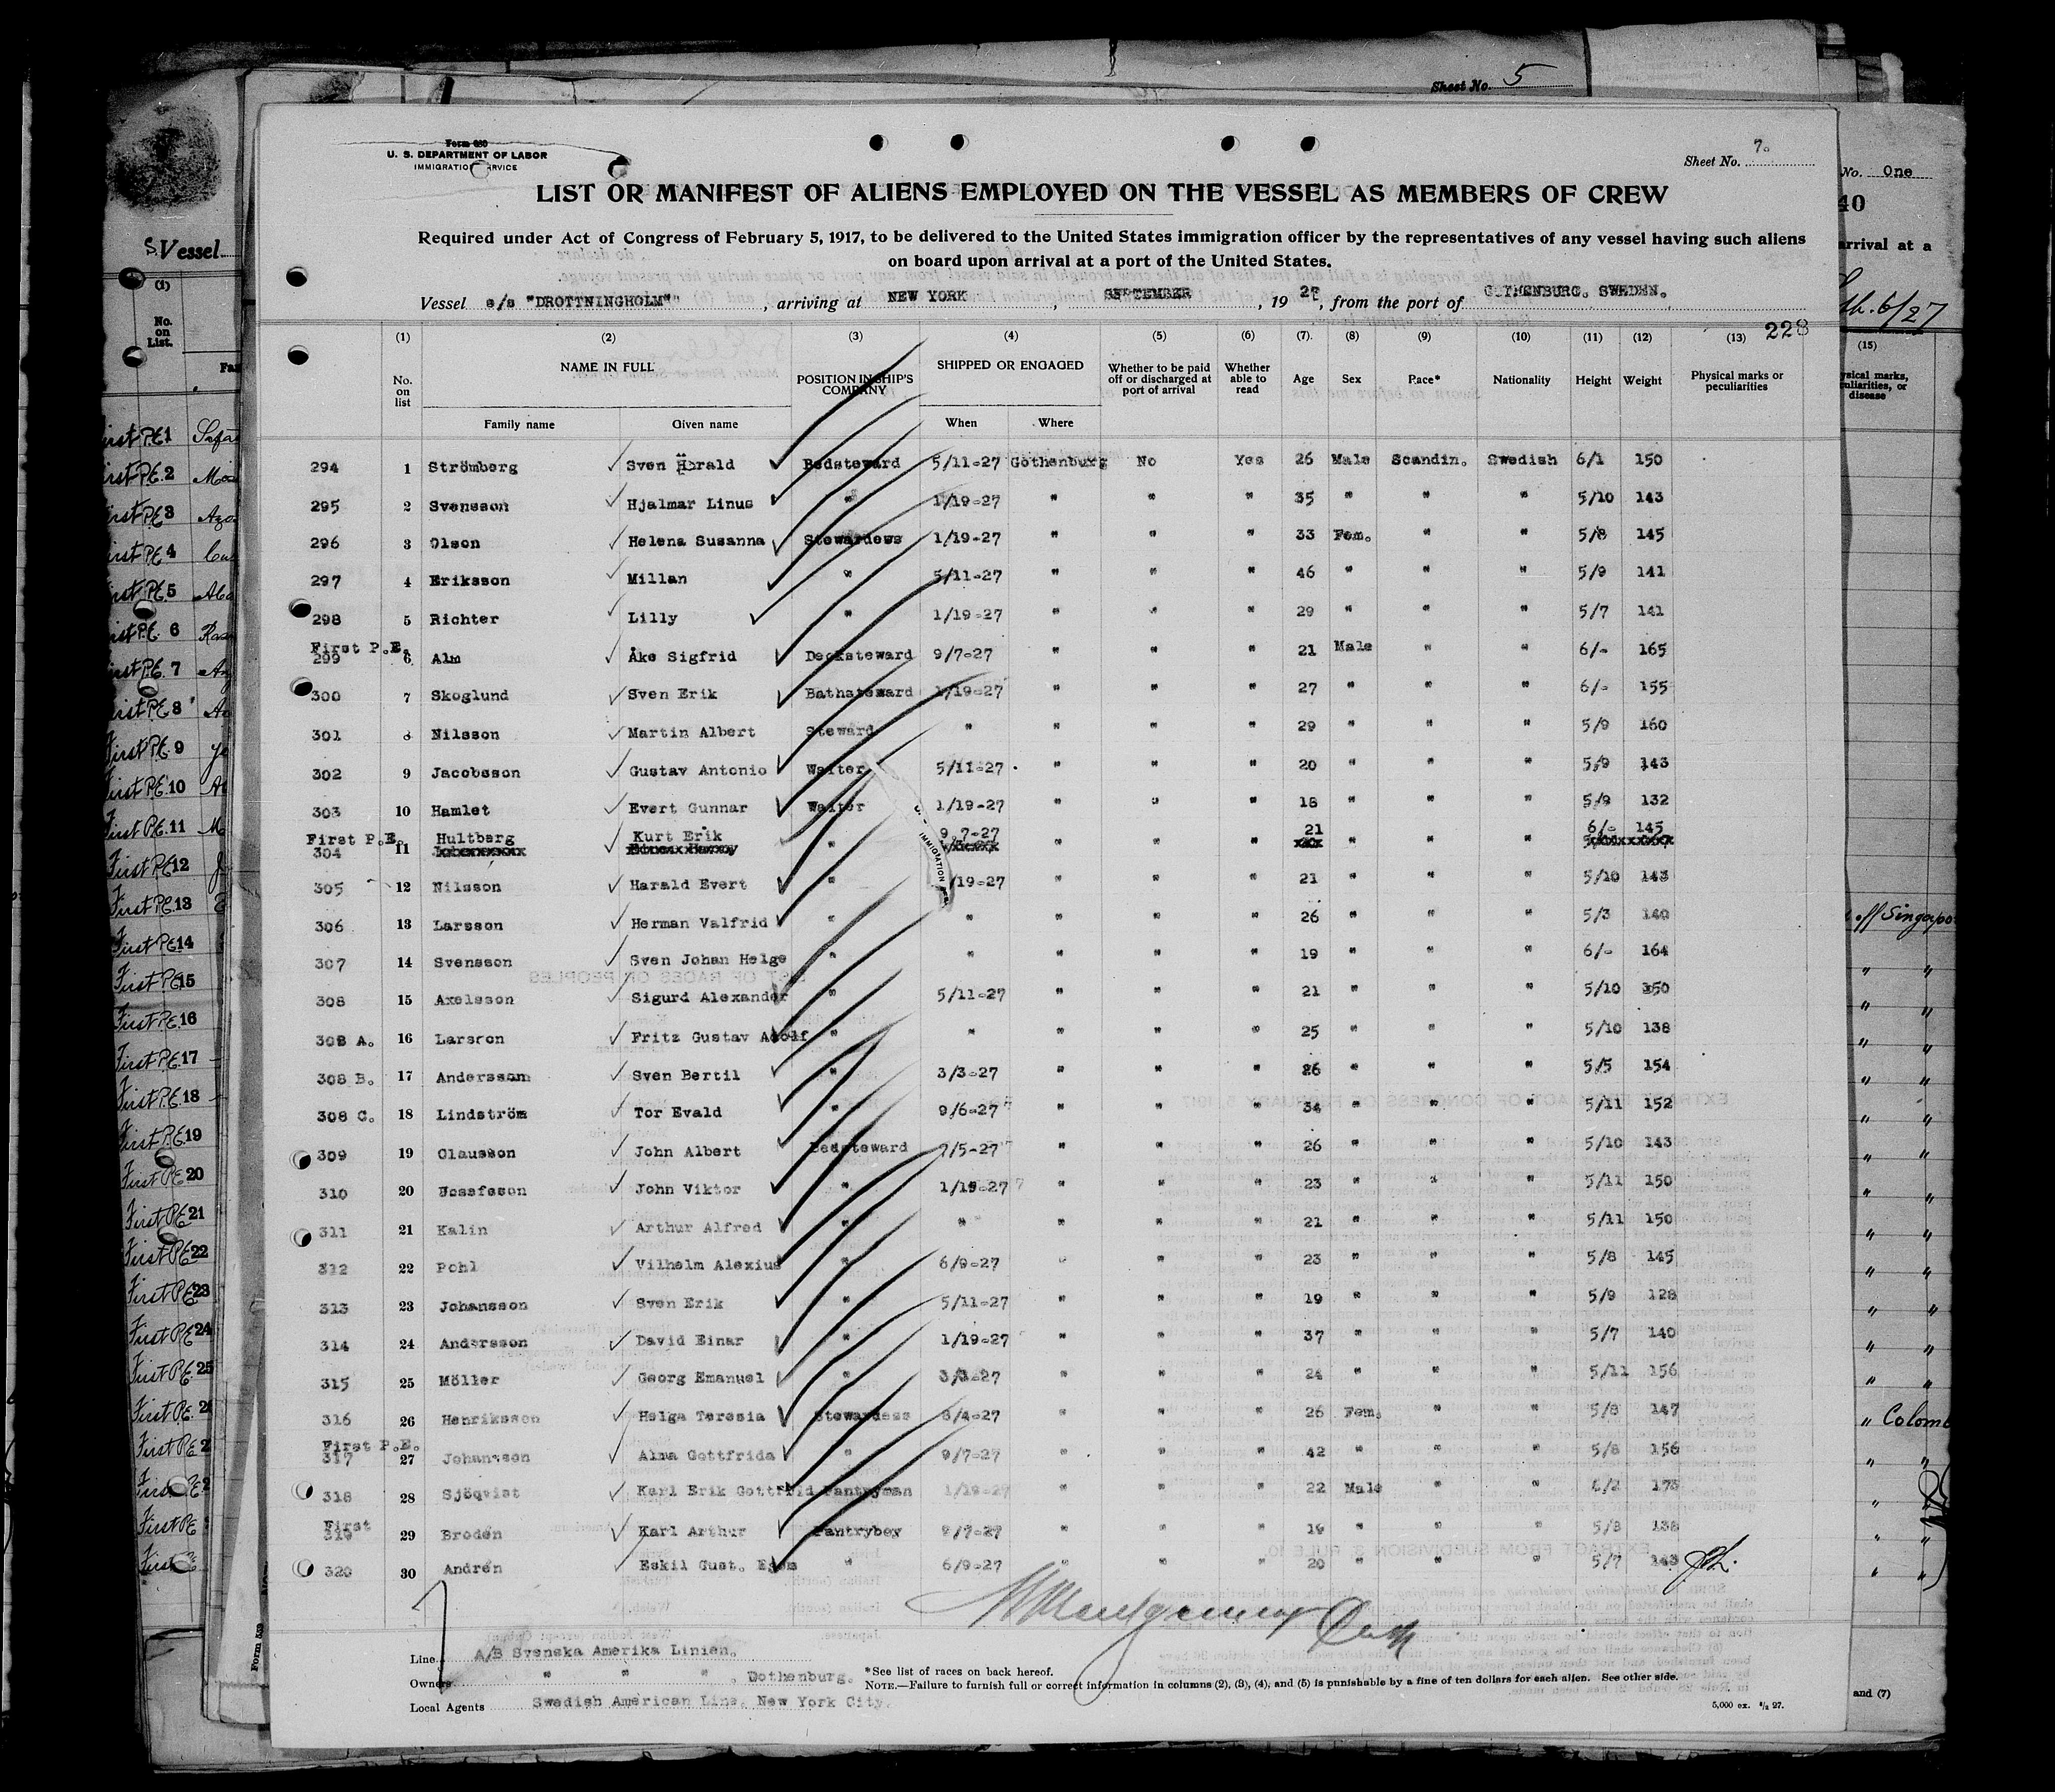 Sheet No. 5
Form 680
U. S. DEPARTMENT OF LABOR
IMMIGRATION SERVICE
Sheet No. 7.
LIST OR MANIFEST OF ALIENS EMPLOYED ON THE VESSEL AS MEMBERS OF CREW
Required under Act of Congress of February 5, 1917, to be delivered to the United States immigration officer by the representatives of any vessel having such aliens
on board upon arrival at a port of the United States.
Vessel s/s "DROTTNINGHOLM" , arriving at NEW YORK , SEPTEMBER , 1927, from the port of GOTHENBURG. SWEDEN.
228
(1) (2) (3) (4) (5) (6) (7) (8) (9) (10) (11) (12) (13)
No. on list NAME IN FULL Family name Given name POSITION IN SHIP'S COMPANY SHIPPED OR ENGAGED When Where Whether to be paid off or discharged at port of arrival Whether able to read Age Sex Race* Nationality Height Weight Physical marks or peculiarities
294 1 Strömberg Sven Harald Bedsteward 5/11-27 Gothenburg No Yes 26 Male Scandin. Swedish 6/1 150
295 2 Svensson Hjalmar Linus " 1/19-27 " " " 35 " " " 5/10 143
296 3 Olson Helena Susanna Stewardess 1/19-27 " " " 33 Fem. " " 5/8 145
297 4 Eriksson Millan " 5/11-27 " " " 46 " " " 5/9 141
298 5 Richter Lilly " 1/19-27 " " " 29 " " " 5/7 141
First P.E.
299 6 Alm Åke Sigfrid Decksteward 9/7-27 " " " 21 Male " " 6/- 165
300 7 Skoglund Sven Erik Bathsteward 1/19-27 " " " 27 " " " 6/- 155
301 8 Nilsson Martin Albert Steward " " " " 29 " " " 5/9 160
302 9 Jacobsson Gustav Antonio Waiter 5/11-27 " " " 20 " " " 5/9 143
303 10 Hamlet Evert Gunnar Waiter 1/19-27 " " " 18 " " " 5/9 132
First P.E. Hultberg Kurt Erik 9/7-27 21 6/- 145
304 11 " " " " " " "
305 12 Nilsson Harald Evert " 1/19-27 " " " 21 " " " 5/10 143
306 13 Larsson Herman Valfrid " " " " " 26 " " " 5/3 140
307 14 Svensson Sven Johan Helge " " " " " 19 " " " 6/- 164
308 15 Axelsson Sigurd Alexander " 5/11-27 " " " 21 " " " 5/10 150
308 A. 16 Larsson Fritz Gustav Adolf " " " " " 25 " " " 5/10 138
308 B. 17 Andersson Sven Bertil " 3/3-27 " " " 26 " " " 5/5 154
308 C. 18 Lindström Tor Evald " 9/6-27 " " " 34 " " " 5/11 152
309 19 Clausson John Albert Bedsteward 7/5-27 " " " 26 " " " 5/10 143
310 20 Josefsson John Viktor " 1/19-27 " " " 23 " " " 5/11 150
311 21 Kalin Arthur Alfred " " " " " 21 " " " 5/11 150
312 22 Pohl Vilhelm Alexius " 6/9-27 " " " 23 " " " 5/8 145
313 23 Johansson Sven Erik " 5/11-27 " " " 19 " " " 5/9 128
314 24 Andersson David Einar " 1/19-27 " " " 37 " " " 5/7 140
315 25 Möller Georg Emanuel " 3/3-27 " " " 24 " " " 5/11 156
316 26 Henriksson Helga Teresia Stewardess 8/4-27 " " " 26 Fem. " " 5/8 147
First P.E.
317 27 Johansson Alma Gottfrida " 9/7-27 " " " 42 " " " 5/8 156
318 28 Sjöqvist Karl Erik Gottfrid Pantryman 1/19-27 " " " 22 Male " " 6/2 173
First
319 29 Brodén Karl Arthur Pantryboy 9/7-27 " " " 16 " " " 5/8 138
320 30 Andrén Eskil Gust. " 6/9-27 " " " 20 " " " 5/7 143
Line A/B Svenska Amerika Linien.
Owners " " " , Gothenburg.
Local Agents Swedish American Line, New York City.
*See list of races on back hereof.
NOTE.—Failure to furnish full or correct information in columns (2), (3), (4), and (5) is punishable by a fine of ten dollars for each alien. See other side.
5,000 ex. 27.
S. Vessel
(1)
No. on List.
First P.E. 1
First P.E. 2
First P.E. 3
First P.E. 4
First P.E. 5
First P.E. 6
First P.E. 7
First P.E. 8
First P.E. 9
First P.E. 10
First P.E. 11
First P.E. 12
First P.E. 13
First P.E. 14
First P.E. 15
First P.E. 16
First P.E. 17
First P.E. 18
First P.E. 19
First P.E. 20
First P.E. 21
First P.E. 22
First P.E. 23
First P.E. 24
First P.E. 25
No. One
40
arrival at a
6/27
(15)
disease
off Singapo
Colomb
and (7)